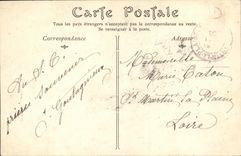 Carte Postale
Tous les pays étrangers n'acceptent pas la correspondance au verso.
Se renseigner à la poste.
Correspondance
Adresse
Du S. C.
prières souvenir
Mademoiselle
Marie
St Martin la Plaine
Loire